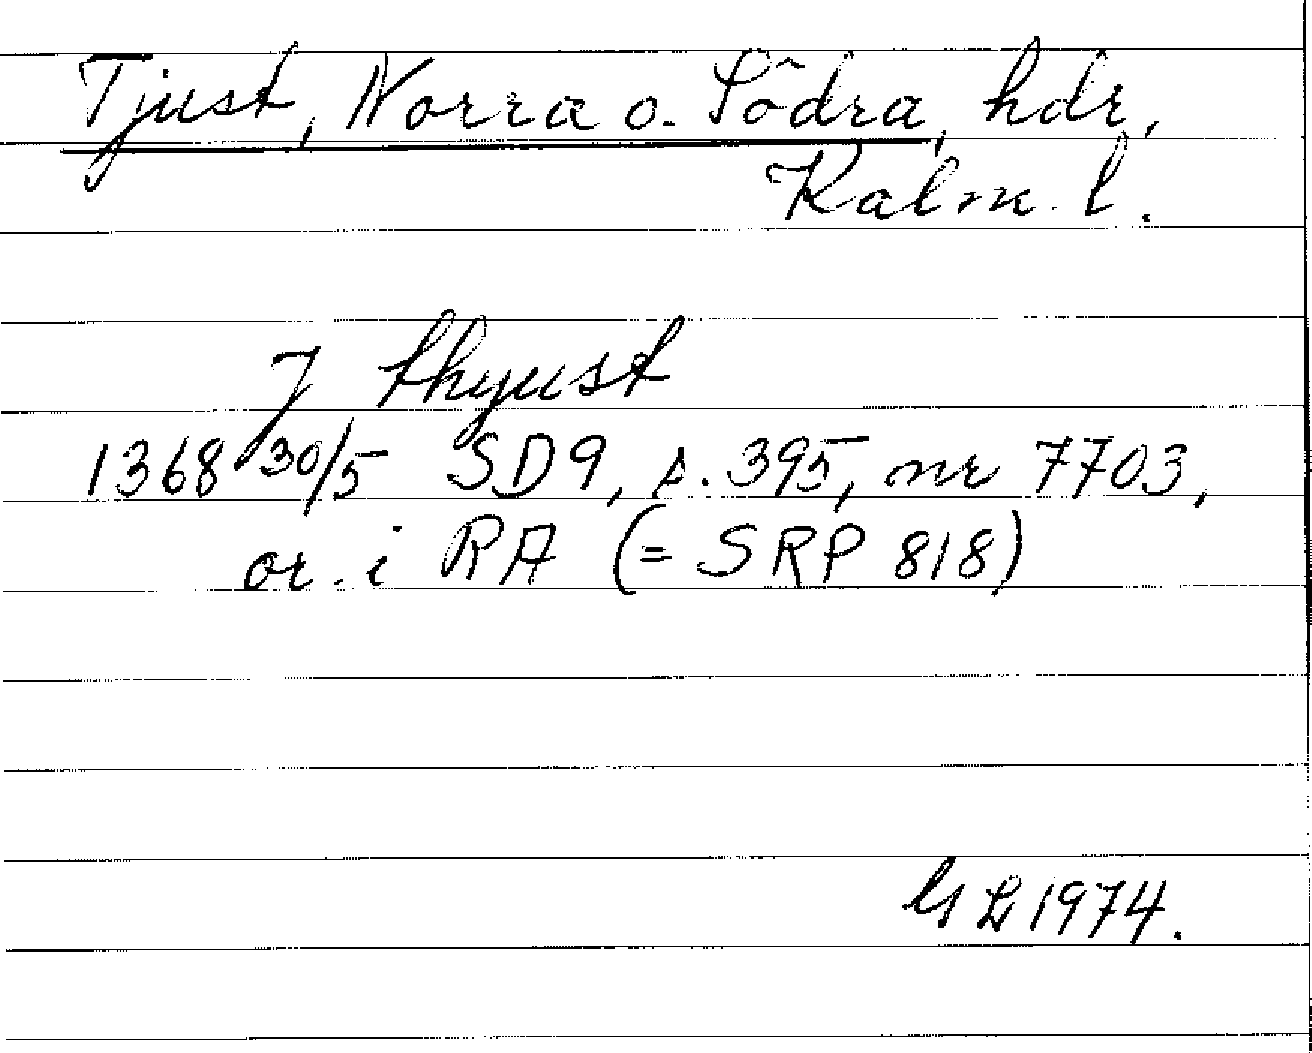 Tjust, Norra o. Södra, hdr,
Kalm. l.
J thyust
1368 30/5 SD9, s. 395, nr 7703,
or. i RA (= SRP 818)
GL 1974.